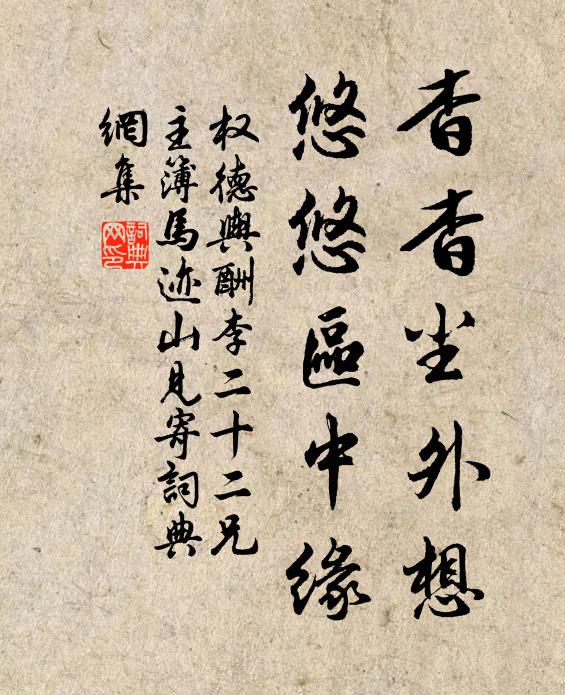 杳杳尘外想
悠悠區中缘
权德輿酬李二十二兄
主簿馬迹山見寄詞典
網集
詞典
网印